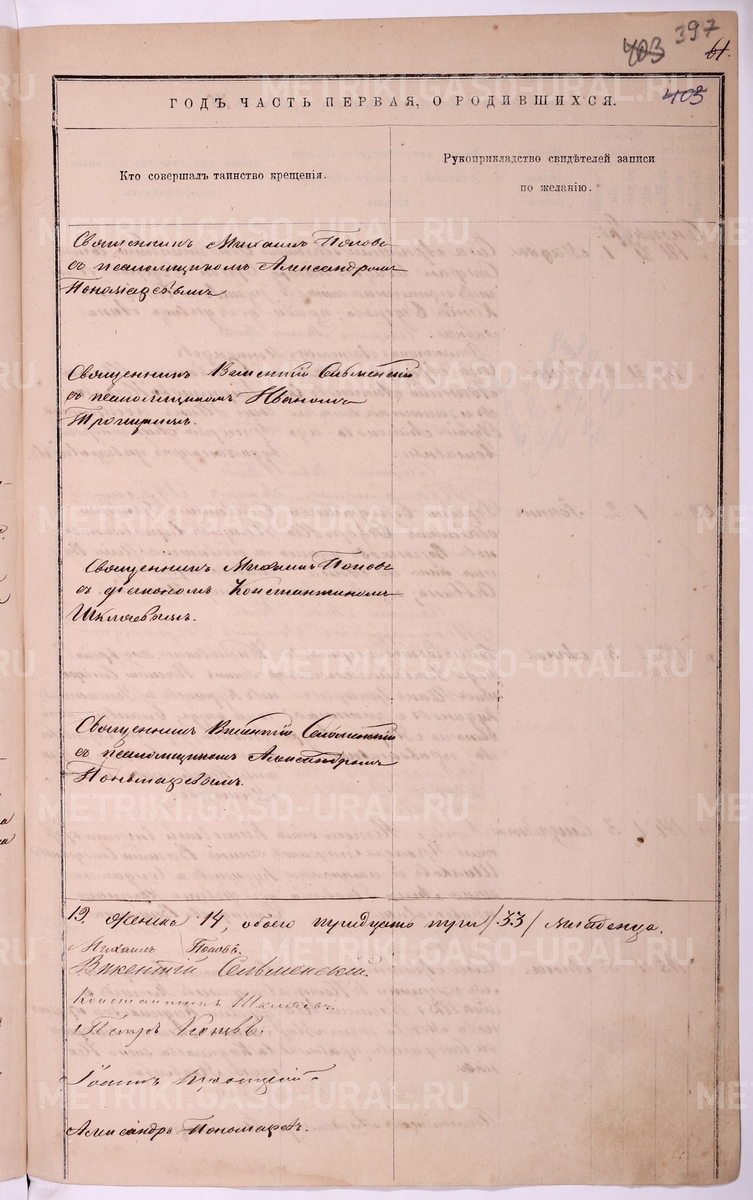 403 397
61.
403
ГОДЪ, ЧАСТЬ ПЕРВАЯ, О РОДИВШИХСЯ.
Кто совершалъ таинство крещенія.
Рукоприкладство свидѣтелей записи
по желанію.
Священникъ Михаилъ Поповъ
съ псаломщикомъ Александромъ
Пономаревымъ
Священникъ Викентій Сельменскій
съ псаломщикомъ Иваномъ
Троицкимъ.
Священникъ Михаилъ Поповъ
съ діакономъ Константиномъ
Шкляевымъ.
Священникъ Викентій Сельменскій
съ псаломщикомъ Александромъ
Пономаревымъ.
19, женска 14, обоего тридцать три /33/ младенца.
Михаилъ Поповъ.
Викентій Сельменскій.
Константинъ Шкляевъ.
Петръ
Іоаннъ Троицкій
Александръ Пономаревъ.
METRIKI.GASO-URAL.RU